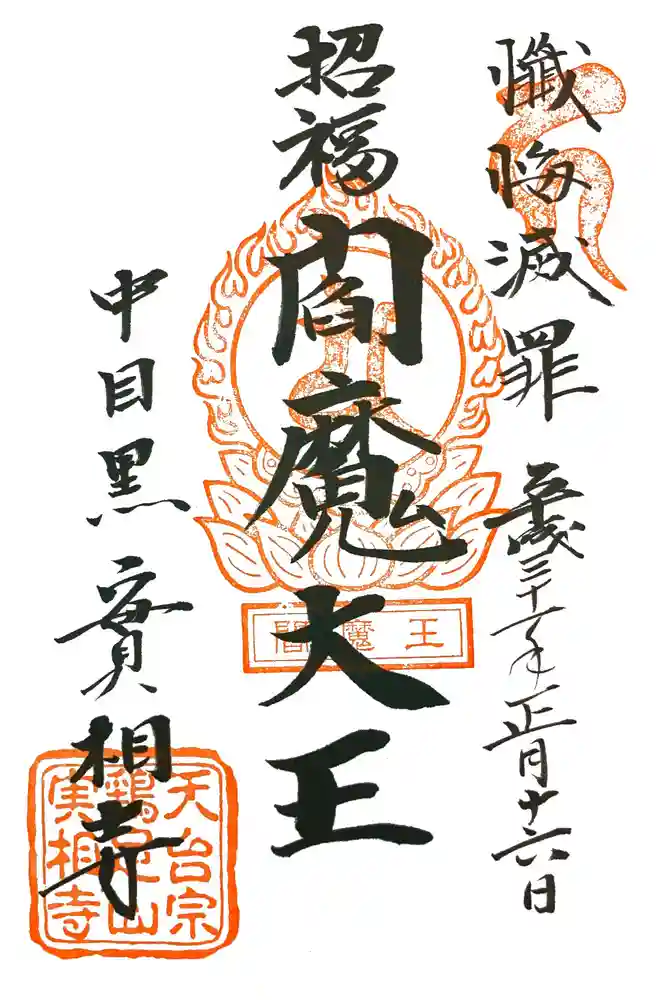 懺悔滅罪
平成三十一年正月十六日
招福
閻魔大王
閻魔王
中目黒 實相寺
天台宗
鷄足山
実相寺